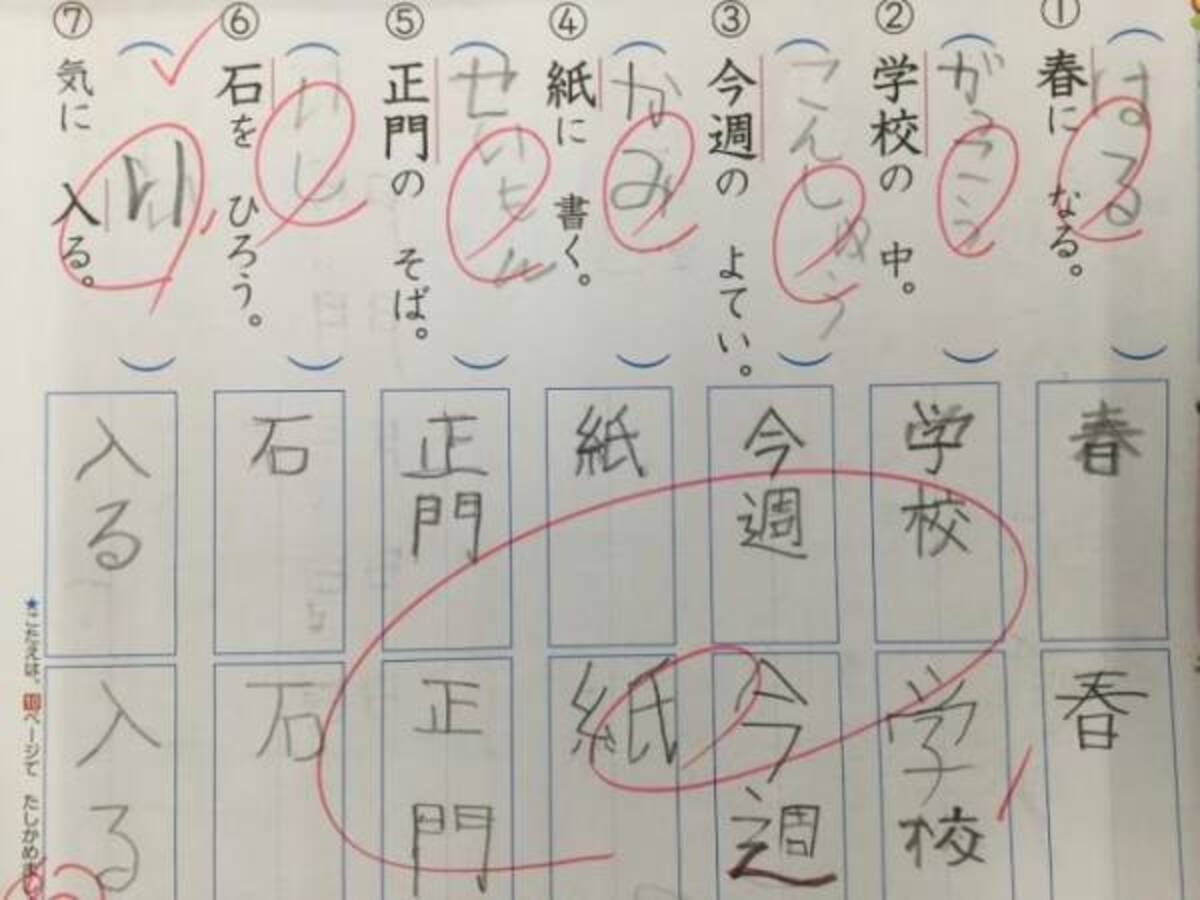 ①春に なる。
はる
②学校の 中。
がっこう
③今週の よてい。
こんしゅう
④紙に 書く。
かみ
⑤正門の そば。
せいもん
⑥石を ひろう。
いし
⑦気に 入る。
い
春
学校
今週
紙
正門
石
入る
春
学校
今週
紙
正門
石
入る
★こたえは、10ページで たしかめ